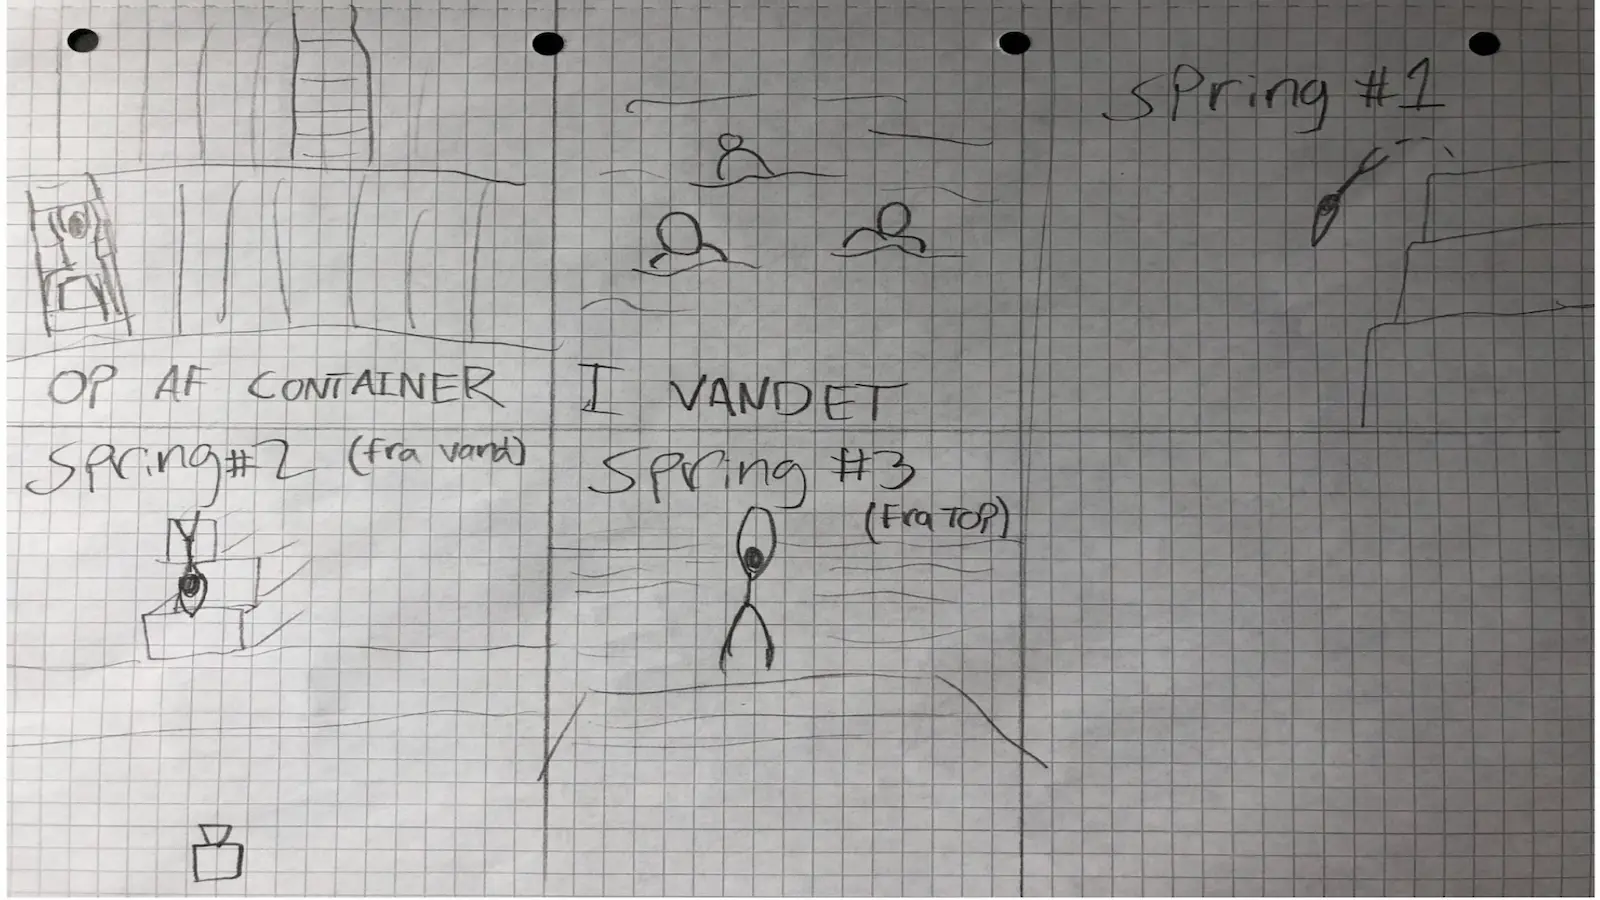 OP AF CONTAINER
I VANDET
Spring #1
Spring #2 (fra vand)
Spring #3
(Fra TOP)